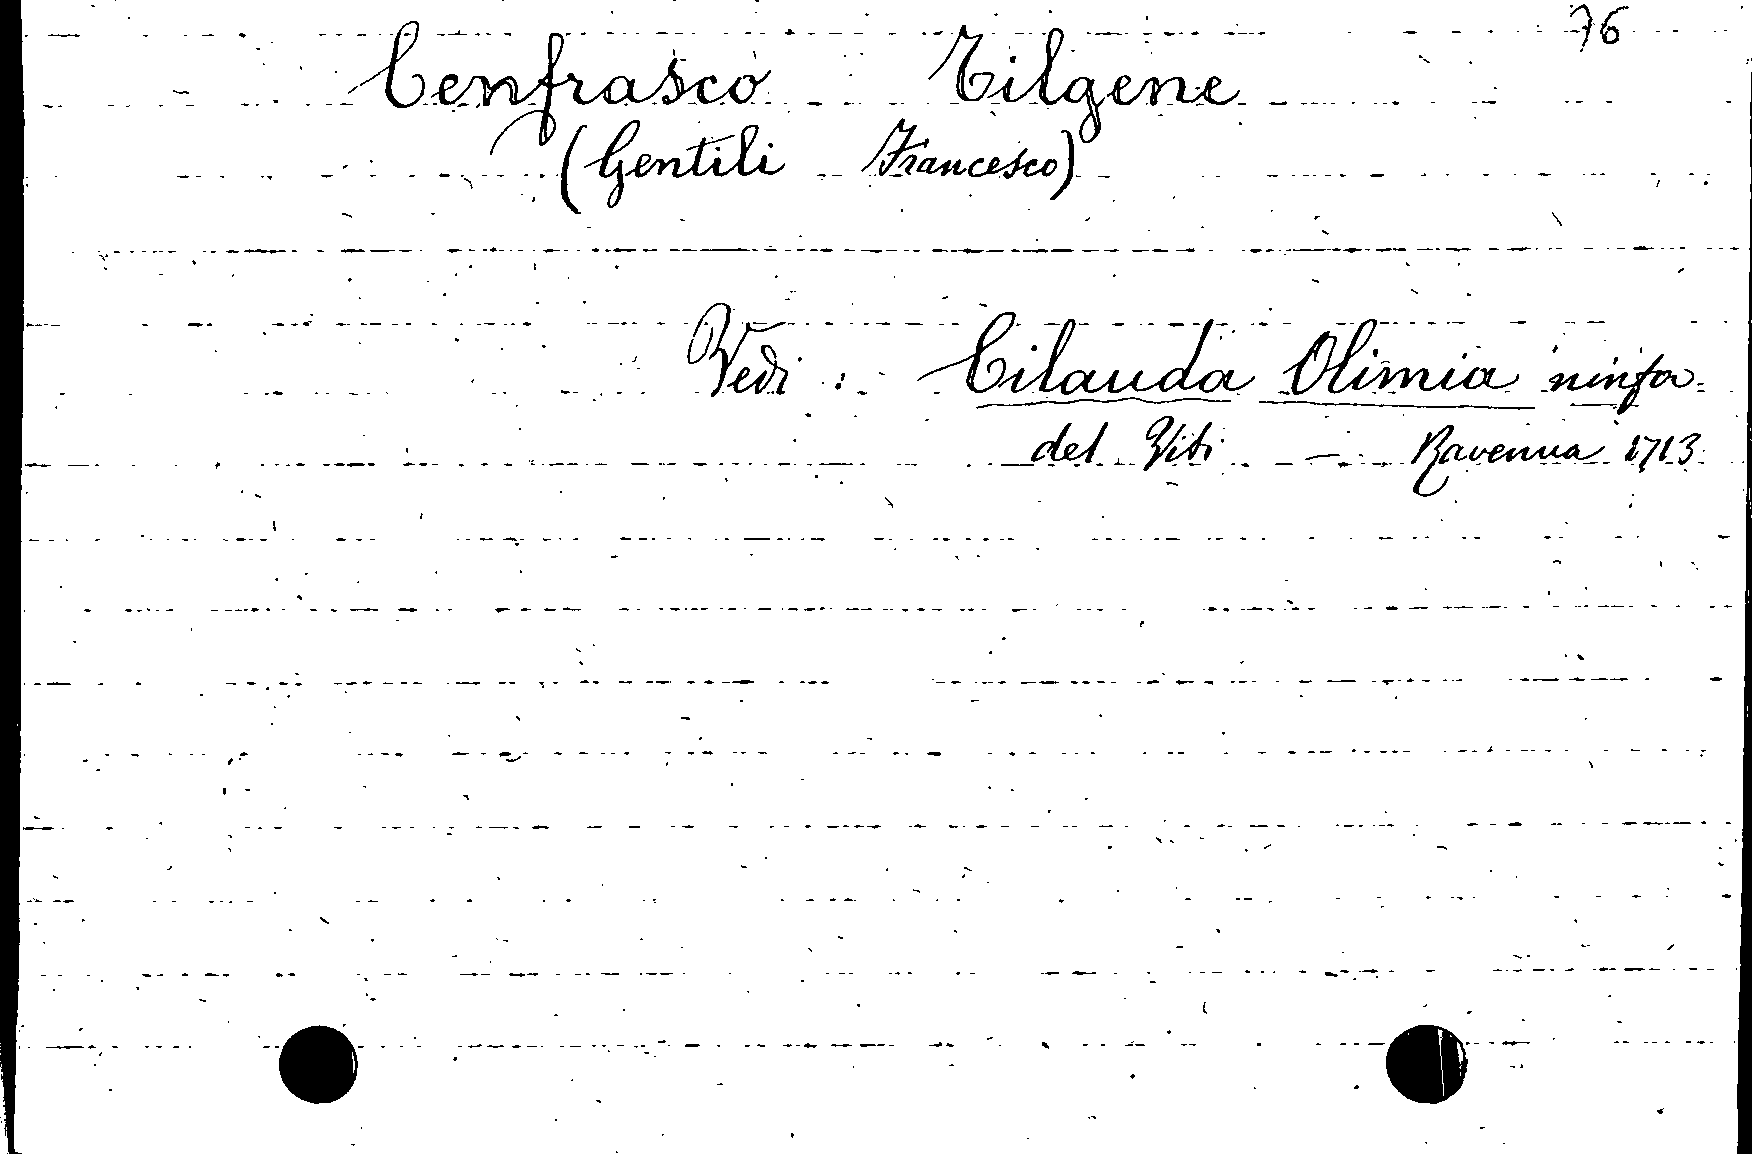 76
Cenfrasco Tilgene
(Gentili Francesco)
Vedi : Cilauda Olimia ninfa
del Viti - Ravenna 1713